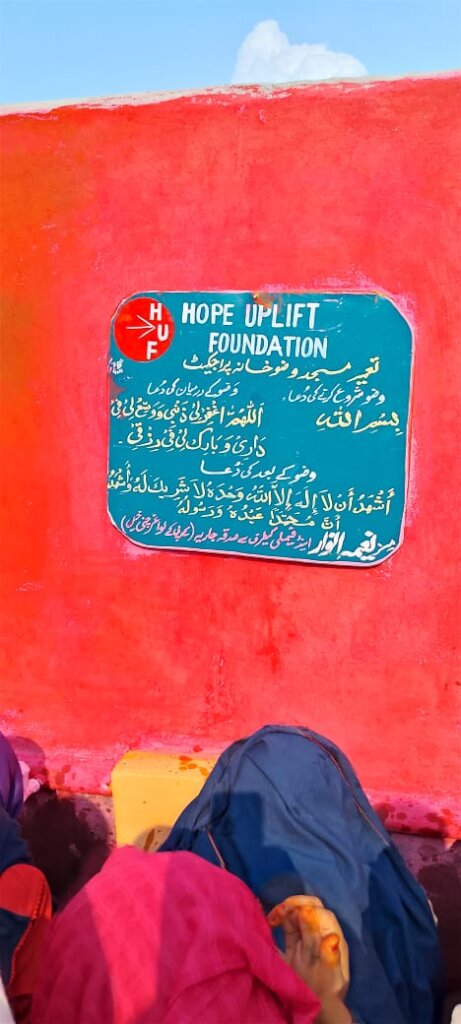 HUF
HOPE UPLIFT
FOUNDATION
تعمیر مسجد وضو خانہ پراجیکٹ
وضو شروع کرنے کی دُعا۔ وضو کے درمیان کی دُعا
بِسْمِ اللّٰہِ اَللّٰهُمَّ اغْفِرْلِیْ ذَنْبِیْ وَوَسِّعْ لِیْ فِیْ
دَارِیْ وَبَارِكْ لِیْ فِیْ رِزْقِیْ۔
وضو کے بعد کی دُعا
أَشْهَدُ أَن لَّا إِلٰهَ إِلَّا اللّٰهُ وَحْدَهُ لَا شَرِيْكَ لَهُ وَأَشْهَدُ
أَنَّ مُحَمَّدًا عَبْدُهُ وَرَسُوْلُهُ
مسز نعیمہ انوار اینڈ فیملی کیطرف سے صدقہ جاریہ